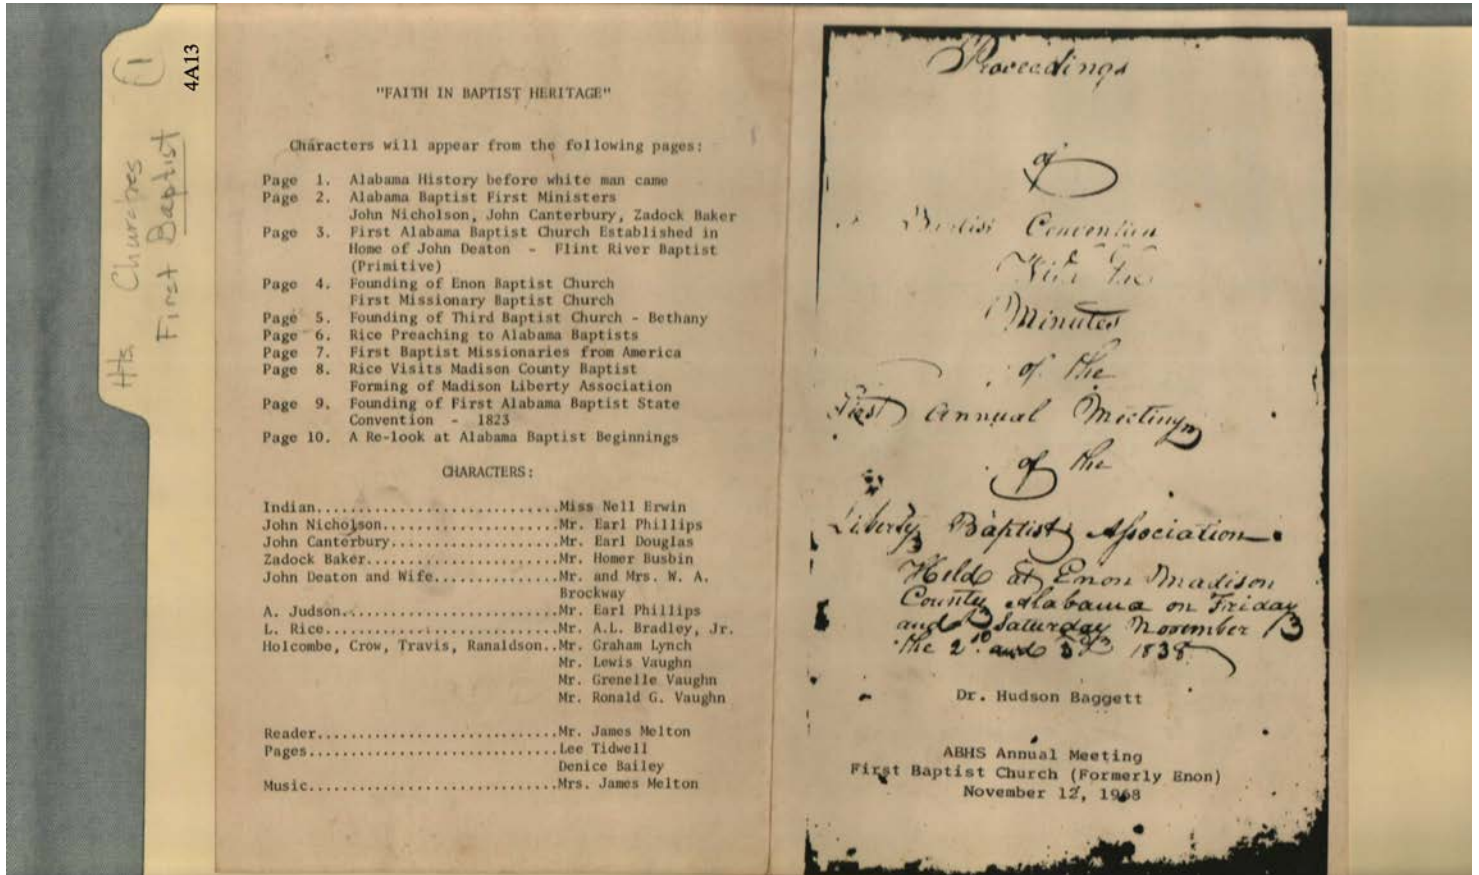 Hts. Churches
First Baptist
1
4A13
"FAITH IN BAPTIST HERITAGE"
Characters will appear from the following pages:
Page 1. Alabama History before white man came
Page 2. Alabama Baptist First Ministers
John Nicholson, John Canterbury, Zadock Baker
Page 3. First Alabama Baptist Church Established in
Home of John Deaton - Flint River Baptist
(Primitive)
Page 4. Founding of Enon Baptist Church
First Missionary Baptist Church
Page 5. Founding of Third Baptist Church - Bethany
Page 6. Rice Preaching to Alabama Baptists
Page 7. First Baptist Missionaries from America
Page 8. Rice Visits Madison County Baptist
Forming of Madison Liberty Association
Page 9. Founding of First Alabama Baptist State
Convention - 1823
Page 10. A Re-look at Alabama Baptist Beginnings
CHARACTERS:
Indian............................Miss Nell Erwin
John Nicholson....................Mr. Earl Phillips
John Canterbury...................Mr. Earl Douglas
Zadock Baker......................Mr. Homer Busbin
John Deaton and Wife..............Mr. and Mrs. W. A.
Brockway
A. Judson.........................Mr. Earl Phillips
L. Rice...........................Mr. A.L. Bradley, Jr.
Holcombe, Crow, Travis, Ranaldson..Mr. Graham Lynch
Mr. Lewis Vaughn
Mr. Grenelle Vaughn
Mr. Ronald G. Vaughn
Reader............................Mr. James Melton
Pages.............................Lee Tidwell
Denice Bailey
Music.............................Mrs. James Melton
Proceedings
of
Convention
Minutes
of the
First Annual Meeting
of the
Liberty Baptist Association
Held at Enon Madison
County Alabama on Friday
and Saturday November
the 2nd and 3rd 1838
Dr. Hudson Baggett
ABHS Annual Meeting
First Baptist Church (Formerly Enon)
November 12, 1968